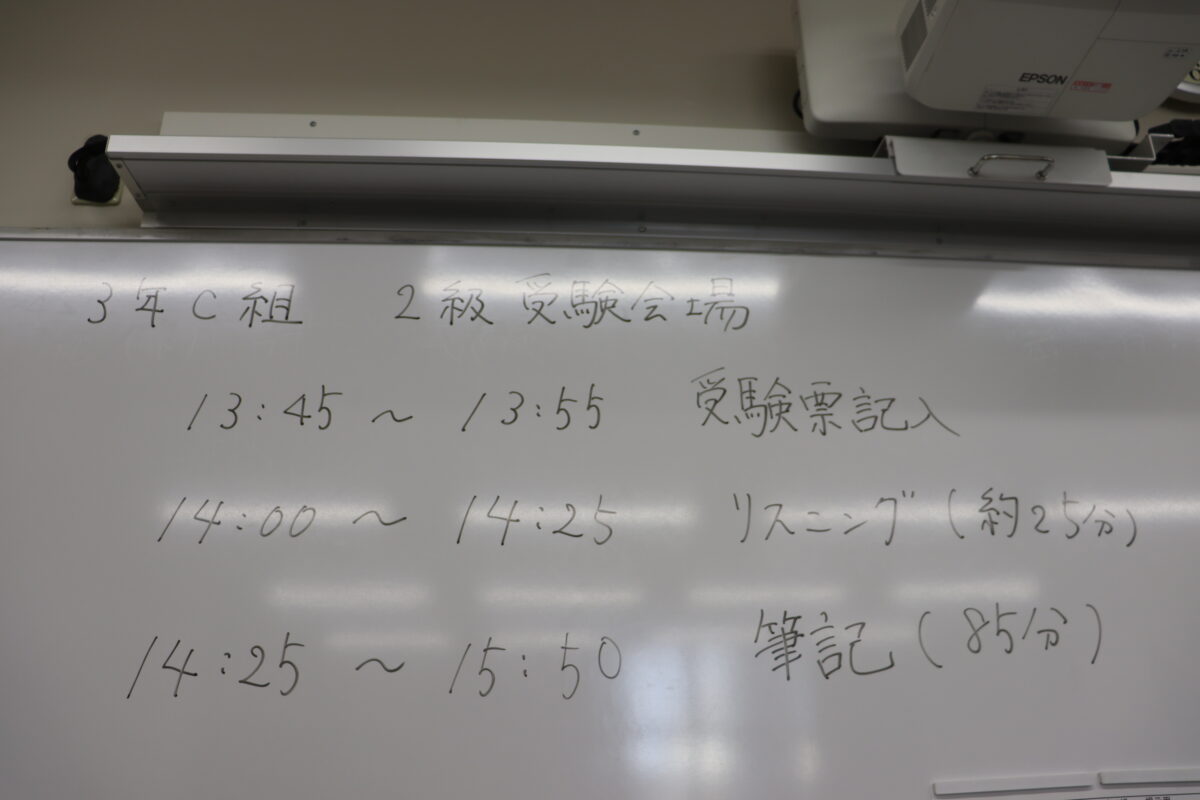 EPSON
3年C組 2級受験会場
13:45 ～ 13:55 受験票記入
14:00 ～ 14:25 リスニング(約25分)
14:25 ～ 15:50 筆記(85分)